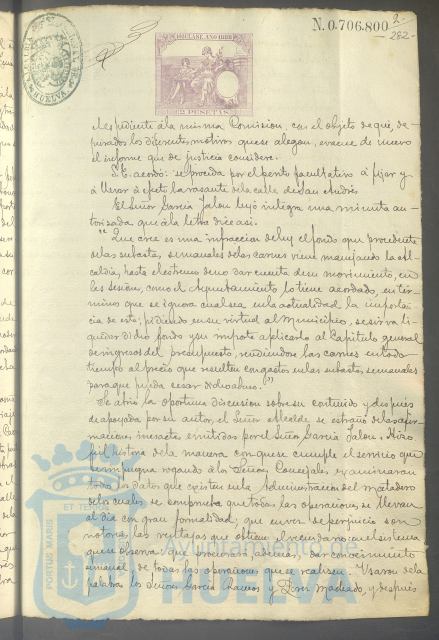 N. 0.706.800
2-
282-
10ª CLASE. AÑO 1888
2 PESETAS
HUELVA
el espediente á la misma Comision con el objeto de que, de-
purados los diferentes motivos que se alegan, evacue de nuevo
el informe que de justicia considere.
S.E. acordó: se proceda por el perito facultativo á fijar y
á llevar á efecto la rasante de la calle de San Andrés.
El Señor García Jalon leyó íntegra una minuta au-
torizada que á la letra dice así.
"Que cree es una infraccion de ley el fondo que procedente
de las subastas semanales de las carnes viene manejando la Al-
caldía, hasta el estremo de no dar cuenta de su movimiento, en
sesion, como el Ayuntamiento lo tiene acordado, en tér-
minos que se ignora cual sea en la actualidad la importan-
cia de este; pidiendo en su virtud al Municipio, se sirva li-
quidar dicho fondo y su importe aplicarlo al Capítulo general
de ingresos del presupuesto, vendiendose las carnes en todo
tiempo al precio que resulten con gastos en las subastas semanales
para que pueda cesar dicho abuso."
Se abrió la oportuna discusion sobre su contenido y despues
de apoyada por su autor, el Señor Alcalde se estrañó de las afir-
maciones inexactas emitidas por el Señor García Jalon; hizo
fiel historia de la manera con que se cumple el servicio que
rogando á los Señores Concejales examinaran
todos los datos que existen en la Administracion del matadero
de los cuales se comprueba que todas las operaciones se llevan
al dia con gran formalidad, que en vez de perjuicio son
notorias las ventajas que obtiene el vecindario en el sistema
que se observa que procurará además, dar conocimiento
semanal de todas las operaciones que se realicen. Usaron de la
palabra los Señores García Ramos y Perez Machado, y despues
PORTUS MARIS
ET TERRÆ
Ayuntamiento de
HUELVA